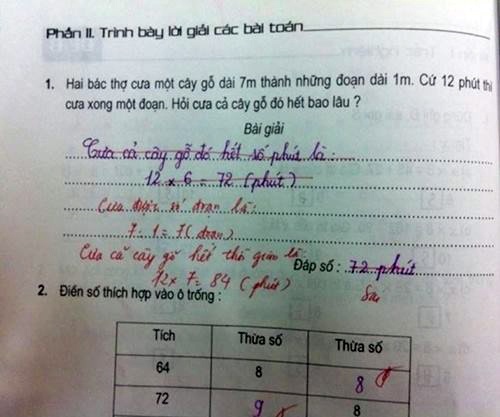 Phần II. Trình bày lời giải các bài toán
1. Hai bác thợ cưa một cây gỗ dài 7m thành những đoạn dài 1m. Cứ 12 phút thì
cưa xong một đoạn. Hỏi cưa cả cây gỗ đó hết bao lâu ?
Bài giải
Cưa cả cây gỗ đó hết số phút là :
12 x 6 = 72 (phút)
Cưa được số đoạn là:
7 : 1 = 7 (đoạn)
Cưa cả cây gỗ hết thời gian là:
Đáp số : 72 phút
12 x 7 = 84 (phút)
Sai
2. Điền số thích hợp vào ô trống :
Tích Thừa số Thừa số
64 8 8
72 9 8